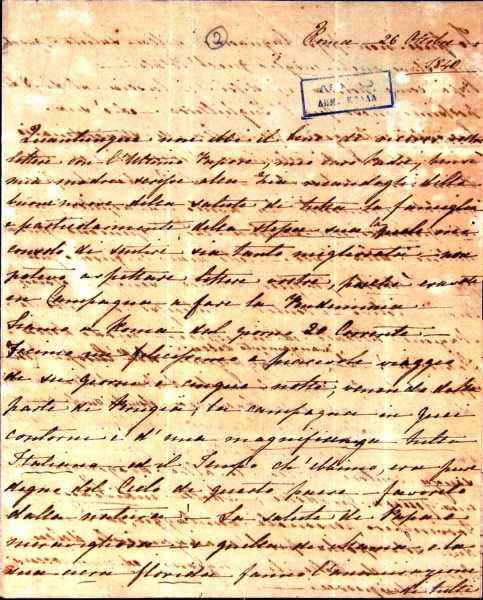 2
Roma 26 Ottobre
1840
Quantunque non ebbi il bene di ricever
lettere con l'ultimo Vapore, mio caro Padre,
mia madre scrisse alla Zia
buone nuove della salute di tutta la famiglia
e particolarmente della stessa sua
di sentire sia tanto migliorata non
poteva aspettare lettere vostre, perchè eravate
in Campagna a fare la Vendemmia.
Siamo a Roma dal giorno 20 Corrente.
Fecimo un e piacevole viaggio
de sei giorni e cinque notte, venendo dalla
parte di Perugia, la campagna in quei
contorni è d'una magnificenza tutta
Italiana ed il Tempo ch'ebbimo, era pure
degno del Cielo di questo paese favorito
dalla natura! La salute di Papa è
maravigliosa e quella di Mama e la
sua cera florida fanno l'ammirazione
di tutti